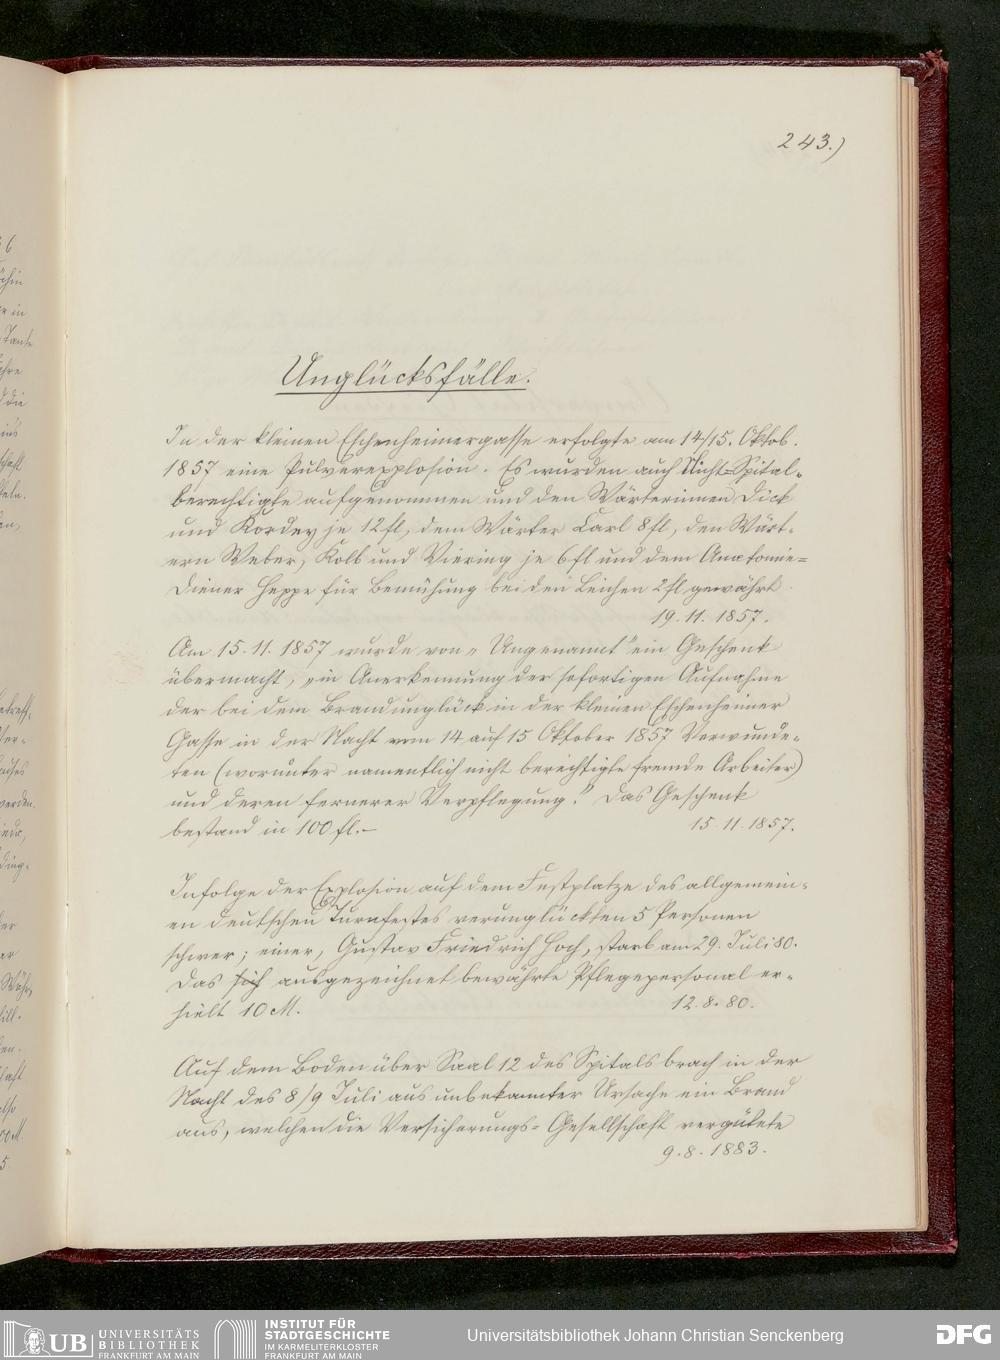 243.)
Unglücksfälle.
In der kleinen Eschenheimergasse erfolgte am 14/15. Oktob.
1857 eine Pulverexplosion. Es wurden auch Nicht-Spital-
berechtigte aufgenommen und den Wärterinnen Dick
und Kordey je 12 fl, dem Wärter Carl 8 fl, den Wärt-
ern Weber, Kolb und Viering je 6 fl und dem Anatomie-
Diener Heppe für Bemühung bei den Leichen 2 fl gewährt.
19. 11. 1857.
Am 15. 11. 1857 wurde von „Ungenannt" ein Geschenk
übermacht, „in Anerkennung der sofortigen Aufnahme
der bei dem Brandunglück in der kleinen Eschenheimer
Gasse in der Nacht vom 14 auf 15 Oktober 1857 Verwunde-
ten (worunter namentlich nicht berechtigte fremde Arbeiter)
und deren fernerer Verpflegung." Das Geschenk
bestand in 100 fl.–
15. 11. 1857.
Infolge der Explosion auf dem Festplatze des allgemein-
en deutschen Turnfestes verunglückten 5 Personen
schwer; einer, Gustav Friedrich Hoch, starb am 29. Juli 80.
Das sich ausgezeichnet bewährte Pflegepersonal er-
hielt 10 M.
12. 8. 80.
Auf dem Boden über Saal 12 des Spitals brach in der
Nacht des 8/9 Juli aus unbekannter Ursache ein Brand
aus, welchen die Versicherungs-Gesellschaft vergütete
9. 8. 1883.
UB UNIVERSITÄTS
BIBLIOTHEK
FRANKFURT AM MAIN
INSTITUT FÜR
STADTGESCHICHTE
IM KARMELITERKLOSTER
FRANKFURT AM MAIN
Universitätsbibliothek Johann Christian Senckenberg
DFG